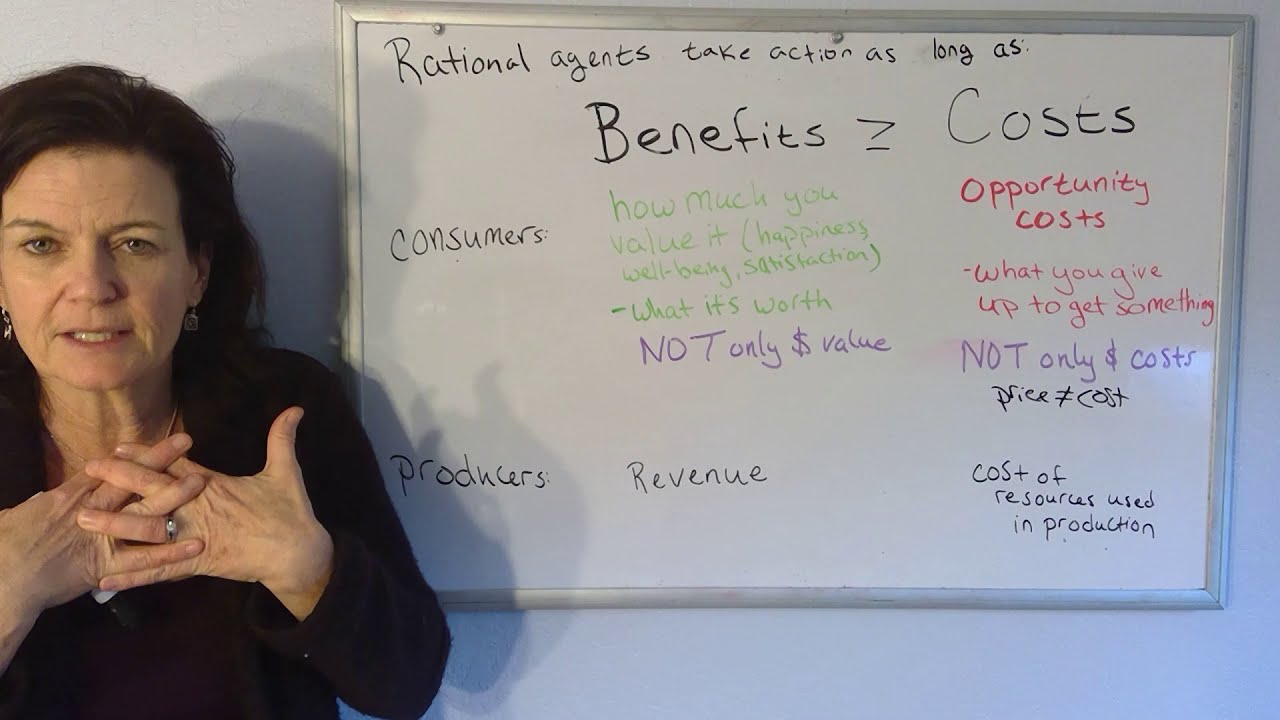 Rational agents take action as long as:
Benefits ≥ Costs
consumers:
how much you
value it (happiness,
well-being, satisfaction)
- what it's worth
NOT only $ value
Opportunity
costs
- what you give
up to get something
NOT only $ costs
price ≠ cost
producers:
Revenue
cost of
resources used
in production